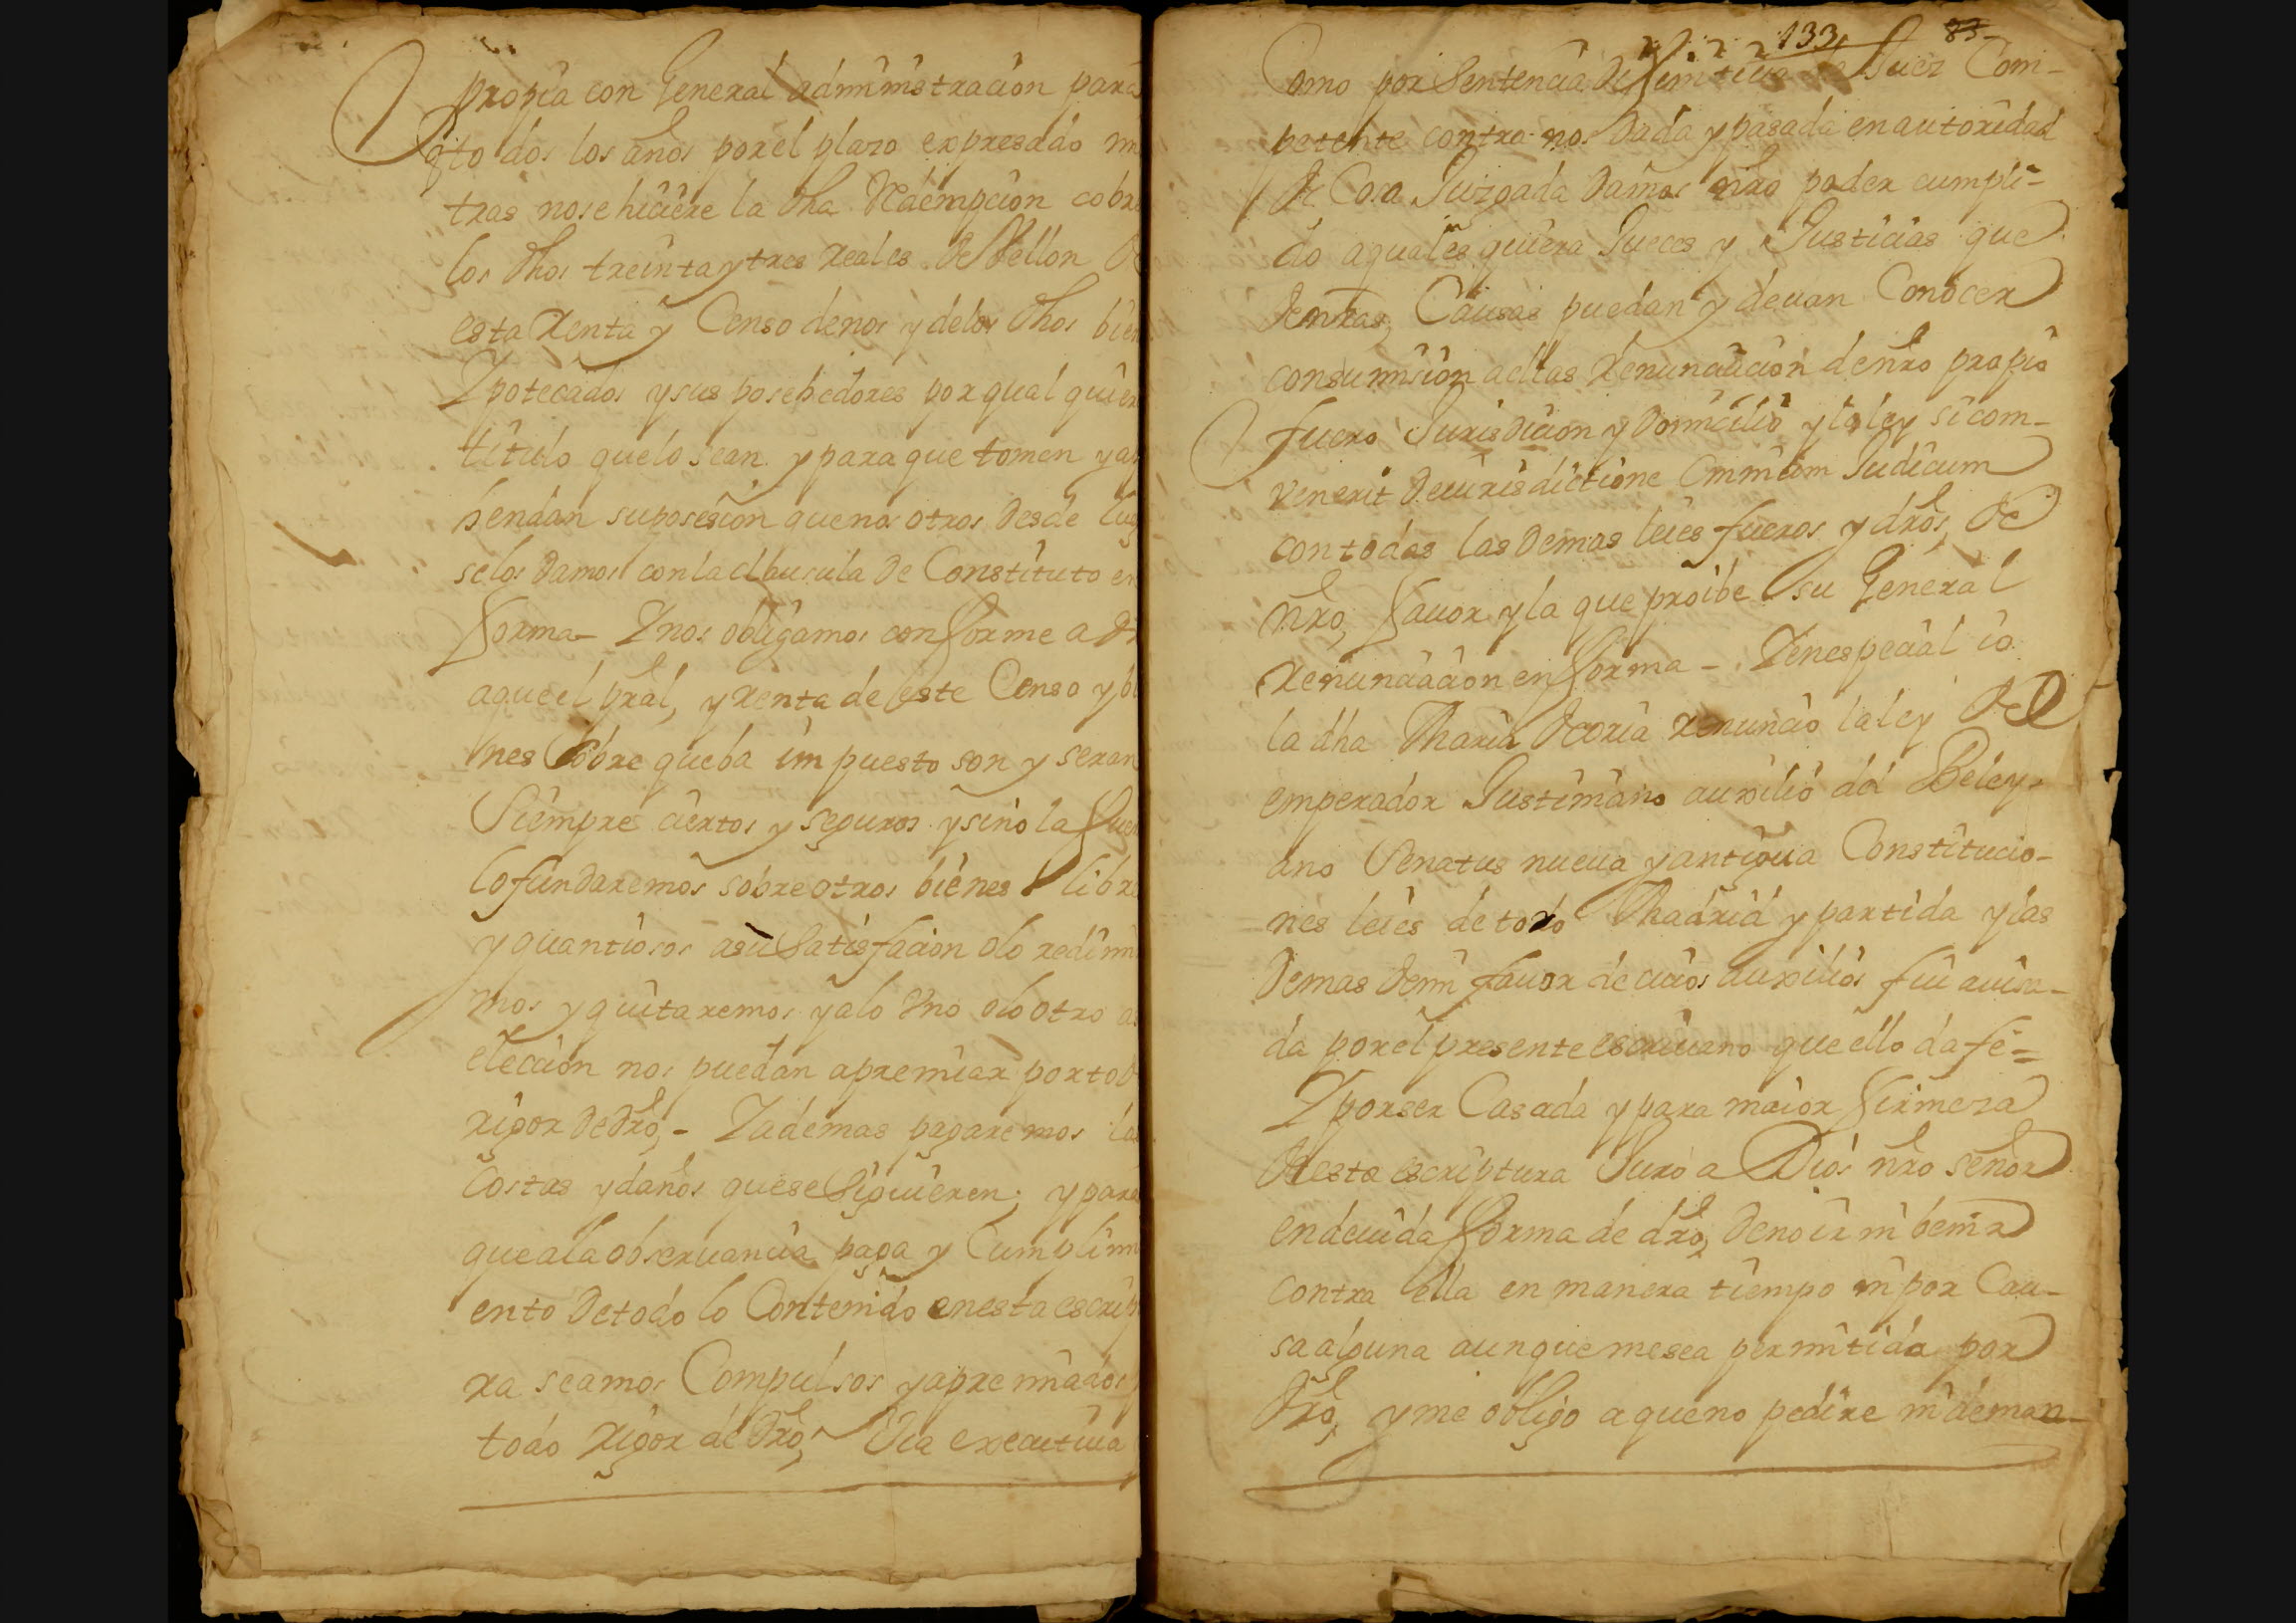 propia con General administracion para
q̃ to dos los años por el plazo expresado mi
tras nose hiciere la dha Redempcion cobre
los dhos treinta y tres Reales de Vellon de
esta Renta y Censo denos y delos dhos bien
Ypotecados y sus posehedores por qual quier
titulo quelo sean y para que tomen y a
hendan suposesion quenos otros desde lueg
selos damos conla clausula de Constituto en
forma – Y nos obligamos conforme a dr
aqueel pral, y Renta de este Censo y bi
nes Sobre queba impuesto son y seran
Siempre ciertos y seguros y sino la fuer
lo fundaremos sobre otros bienes libre
y quantiosos asu Satisfacion olo redimi
mos y quitaremos y alo Vno olo otro a
eleccion nos puedan apremiar por tod
rigor de dro, – Y ademas pagaremos las
Costas y daños quese Siguieren; y para
queala obseruancia paga y Cumplimi
ento de todo lo Contenido enesta escrip
ra seamos Compulsos y apremiados
todo Rigor de dro, Via executiua
133 83
Como por Sentencia Difinitiua de Juez Com-
petente contra nos dada y pasada en autoridad
de Cosa Juzgada damos nro poder cumpli-
do aqualesquiera Jueces y Justicias que
denras, Causas puedan y deuan Conocer
consumision aellas Renunciacion denro propio
fuero Jurisdicion y Domicilio y la ley sicom-
venerit de iurisdictione Omnium Judicum
contodas las demas leies fueros y dros, de
nro, fauor y la que proibe su General
Renunciacion en forma – Y enespecial io
la dha Maria de coria Renuncio la ley del
emperador Justiniano auxilio del Beley-
ano Senatus nueua y antigua Constitucio-
nes leies de toro Madrid y partida y las
demas demi fauor de cuios auxilios fui auisa-
da por el presente escriuano que ello da fe =
Y por ser Casada y para maior firmeza
desta escriptura Juro a Dios nro señor
endeuida forma de dro, deno ir ni benir
contra ella en manera tiempo ni por Cau-
sa alguna aunque mesea permitida por
dro, y me obligo a queno pedire ni deman-